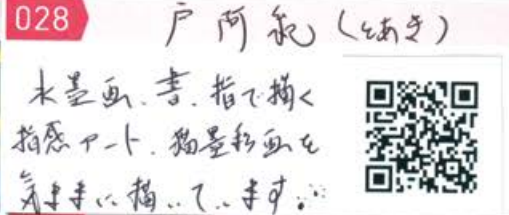 028
戸阿紀（とあき）
水墨画、書、指で描く
指感アート、猫墨彩画を
気ままに描いています。